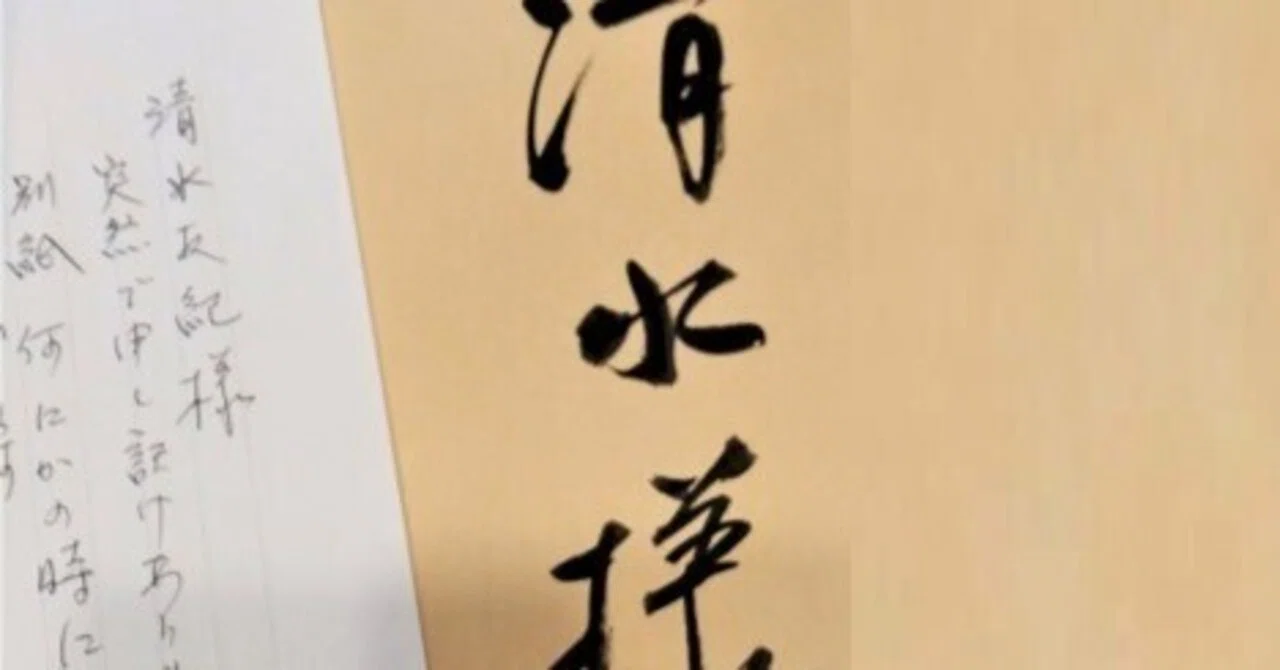 清水様
清水友紀様
突然で申し訳けあり
別紙 何にかの時に